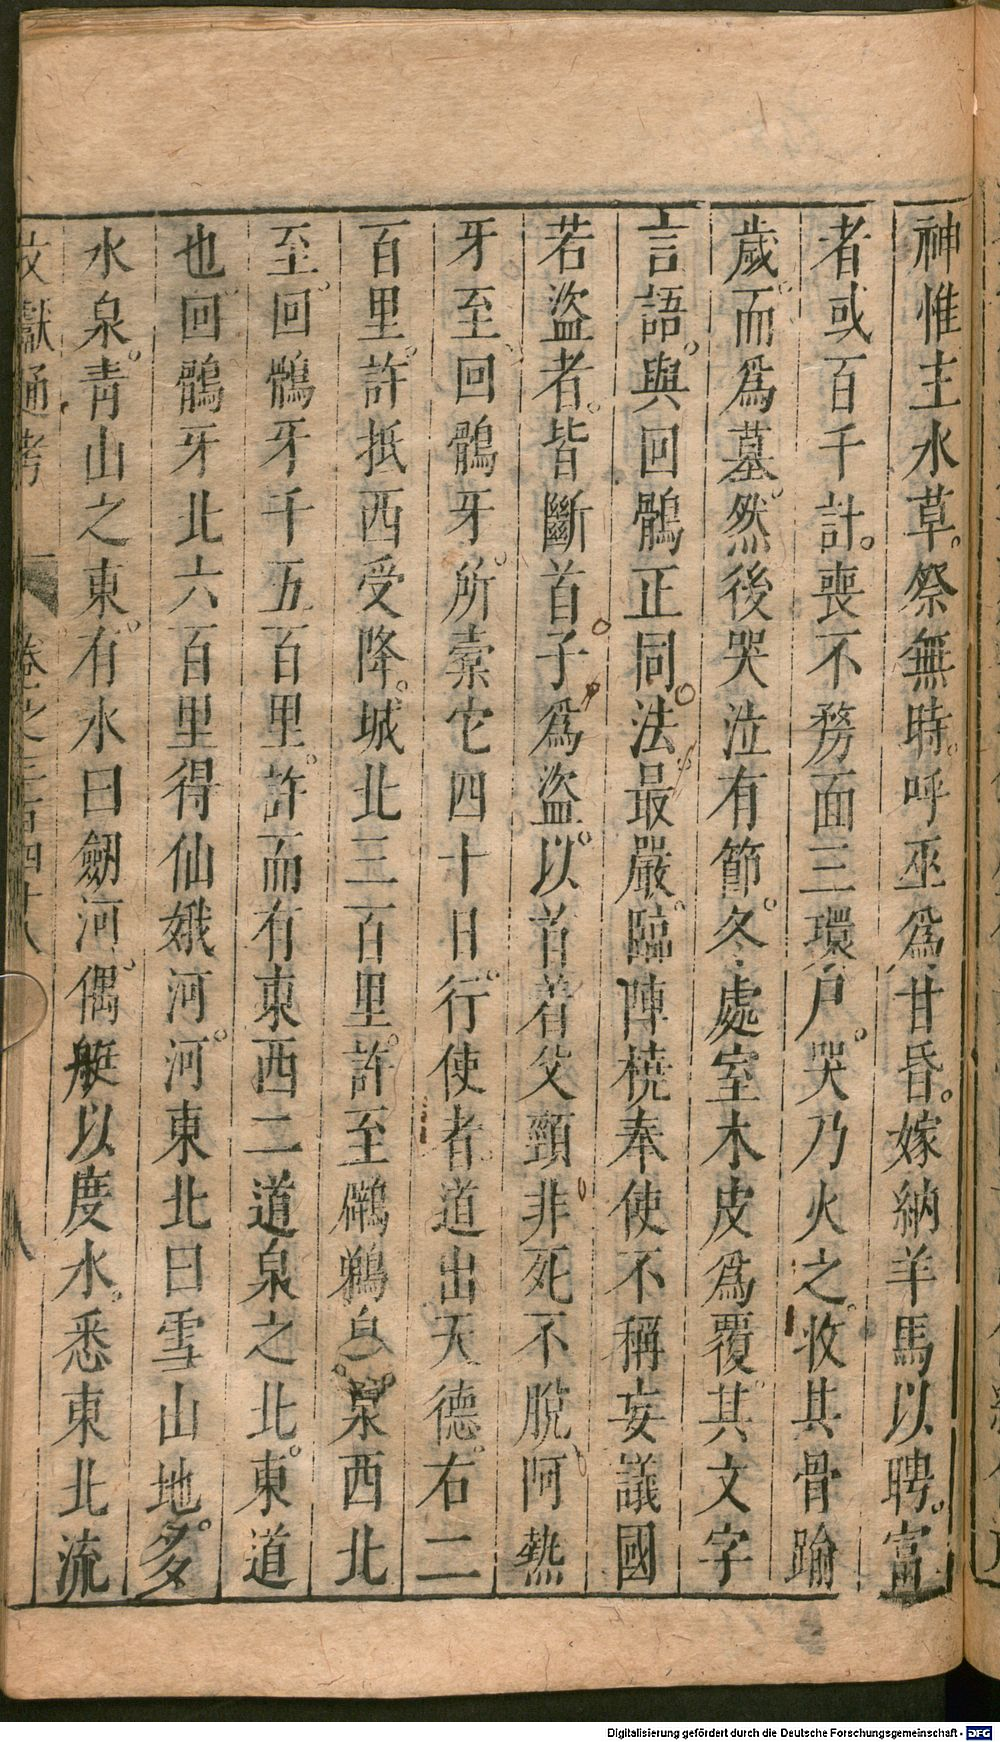 神惟主水草祭無時呼巫爲甘昏嫁納羊馬以聘富
者或百千計喪不務面三環户哭乃火之收其骨踰
歲而爲墓然後哭泣有節冬處室木皮爲覆其文字
言語與回鶻正同法最嚴臨陣橈奉使不稱妄議國
若盜者皆斷首子爲盜以首着父頸非死不脫阿熱
牙至回鶻牙所橐它四十日行使者道出天德右二
百里許抵西受降城北三百里許至鸊鵜泉泉西北
至回鶻牙千五百里許而有東西二道泉之北東道
也回鶻牙北六百里得仙娥河河東北曰雪山地多
水泉青山之東有水曰劒河偶艇以度水悉東北流
文獻通考 卷之三百四十八 八
Digitalisierung gefördert durch die Deutsche Forschungsgemeinschaft - DFG